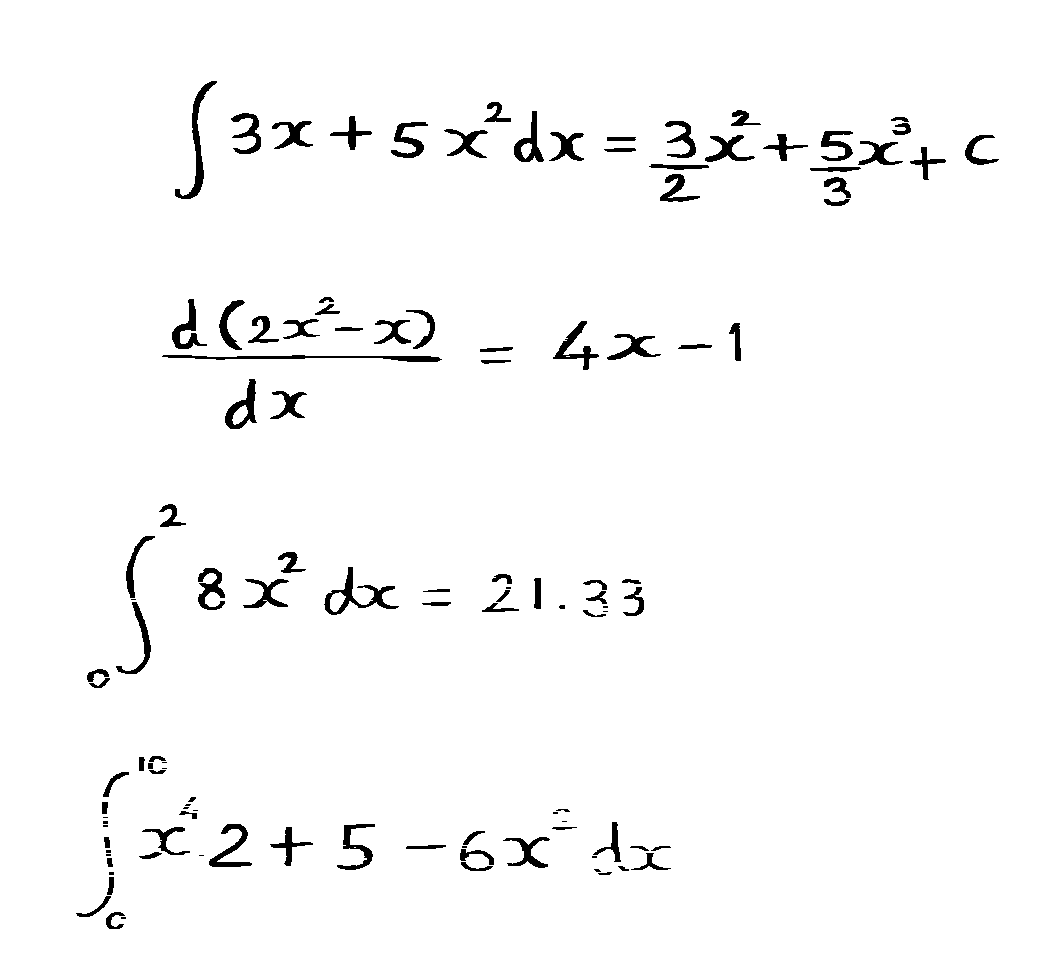 ∫ 3x + 5x² dx = 3/2 x² + 5/3 x³ + C
d(2x² - x)/dx = 4x - 1
∫₀² 8x² dx = 21.33
∫ x⁴ 2 + 5 - 6x dx